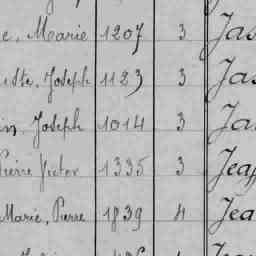 e, Marie 1207 3 Jas
iste, Joseph 1123 3 Jas
in, Joseph 1014 3 Jas
Pierre Victor 1335 3 Jeaff
Marie, Pierre 1839 4 Jea